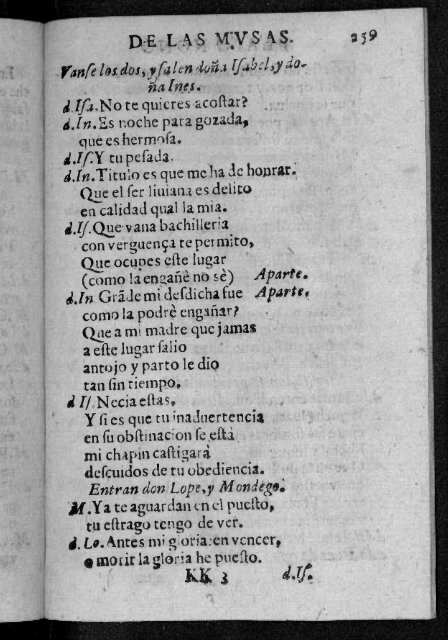 DE LAS MVSAS. 259
Vanse los dos, y salen doña Isabel, y do-
ña Ines.
d.Isa. No te quieres acostar?
d.In. Es noche para gozada,
que es hermosa.
d.Is. Y tu pesada.
d.In. Titulo es que me ha de honrar.
Que el ser liuiana es delito
en calidad qual la mia.
d.Is. Que vana bachilleria
con verguença te permito,
Que ocupes este lugar
(como la engañè no sè) Aparte.
d.In Grãde mi desdicha fue Aparte.
como la podrè engañar?
Que a mi madre que jamas
a este lugar salio
antojo y parto le dio
tan sin tiempo,
d Is. Necia estas,
Y si es que tu inaduertencia
en su obstinacion se està
mi chapin castigarà
descuidos de tu obediencia.
Entran don Lope, y Mondego.
M. Ya te aguardan en el puesto,
tu estrago tengo de ver.
d. Lo. Antes mi gloria: en vencer,
o morir la gloria he puesto.
KK 3 d.Is.